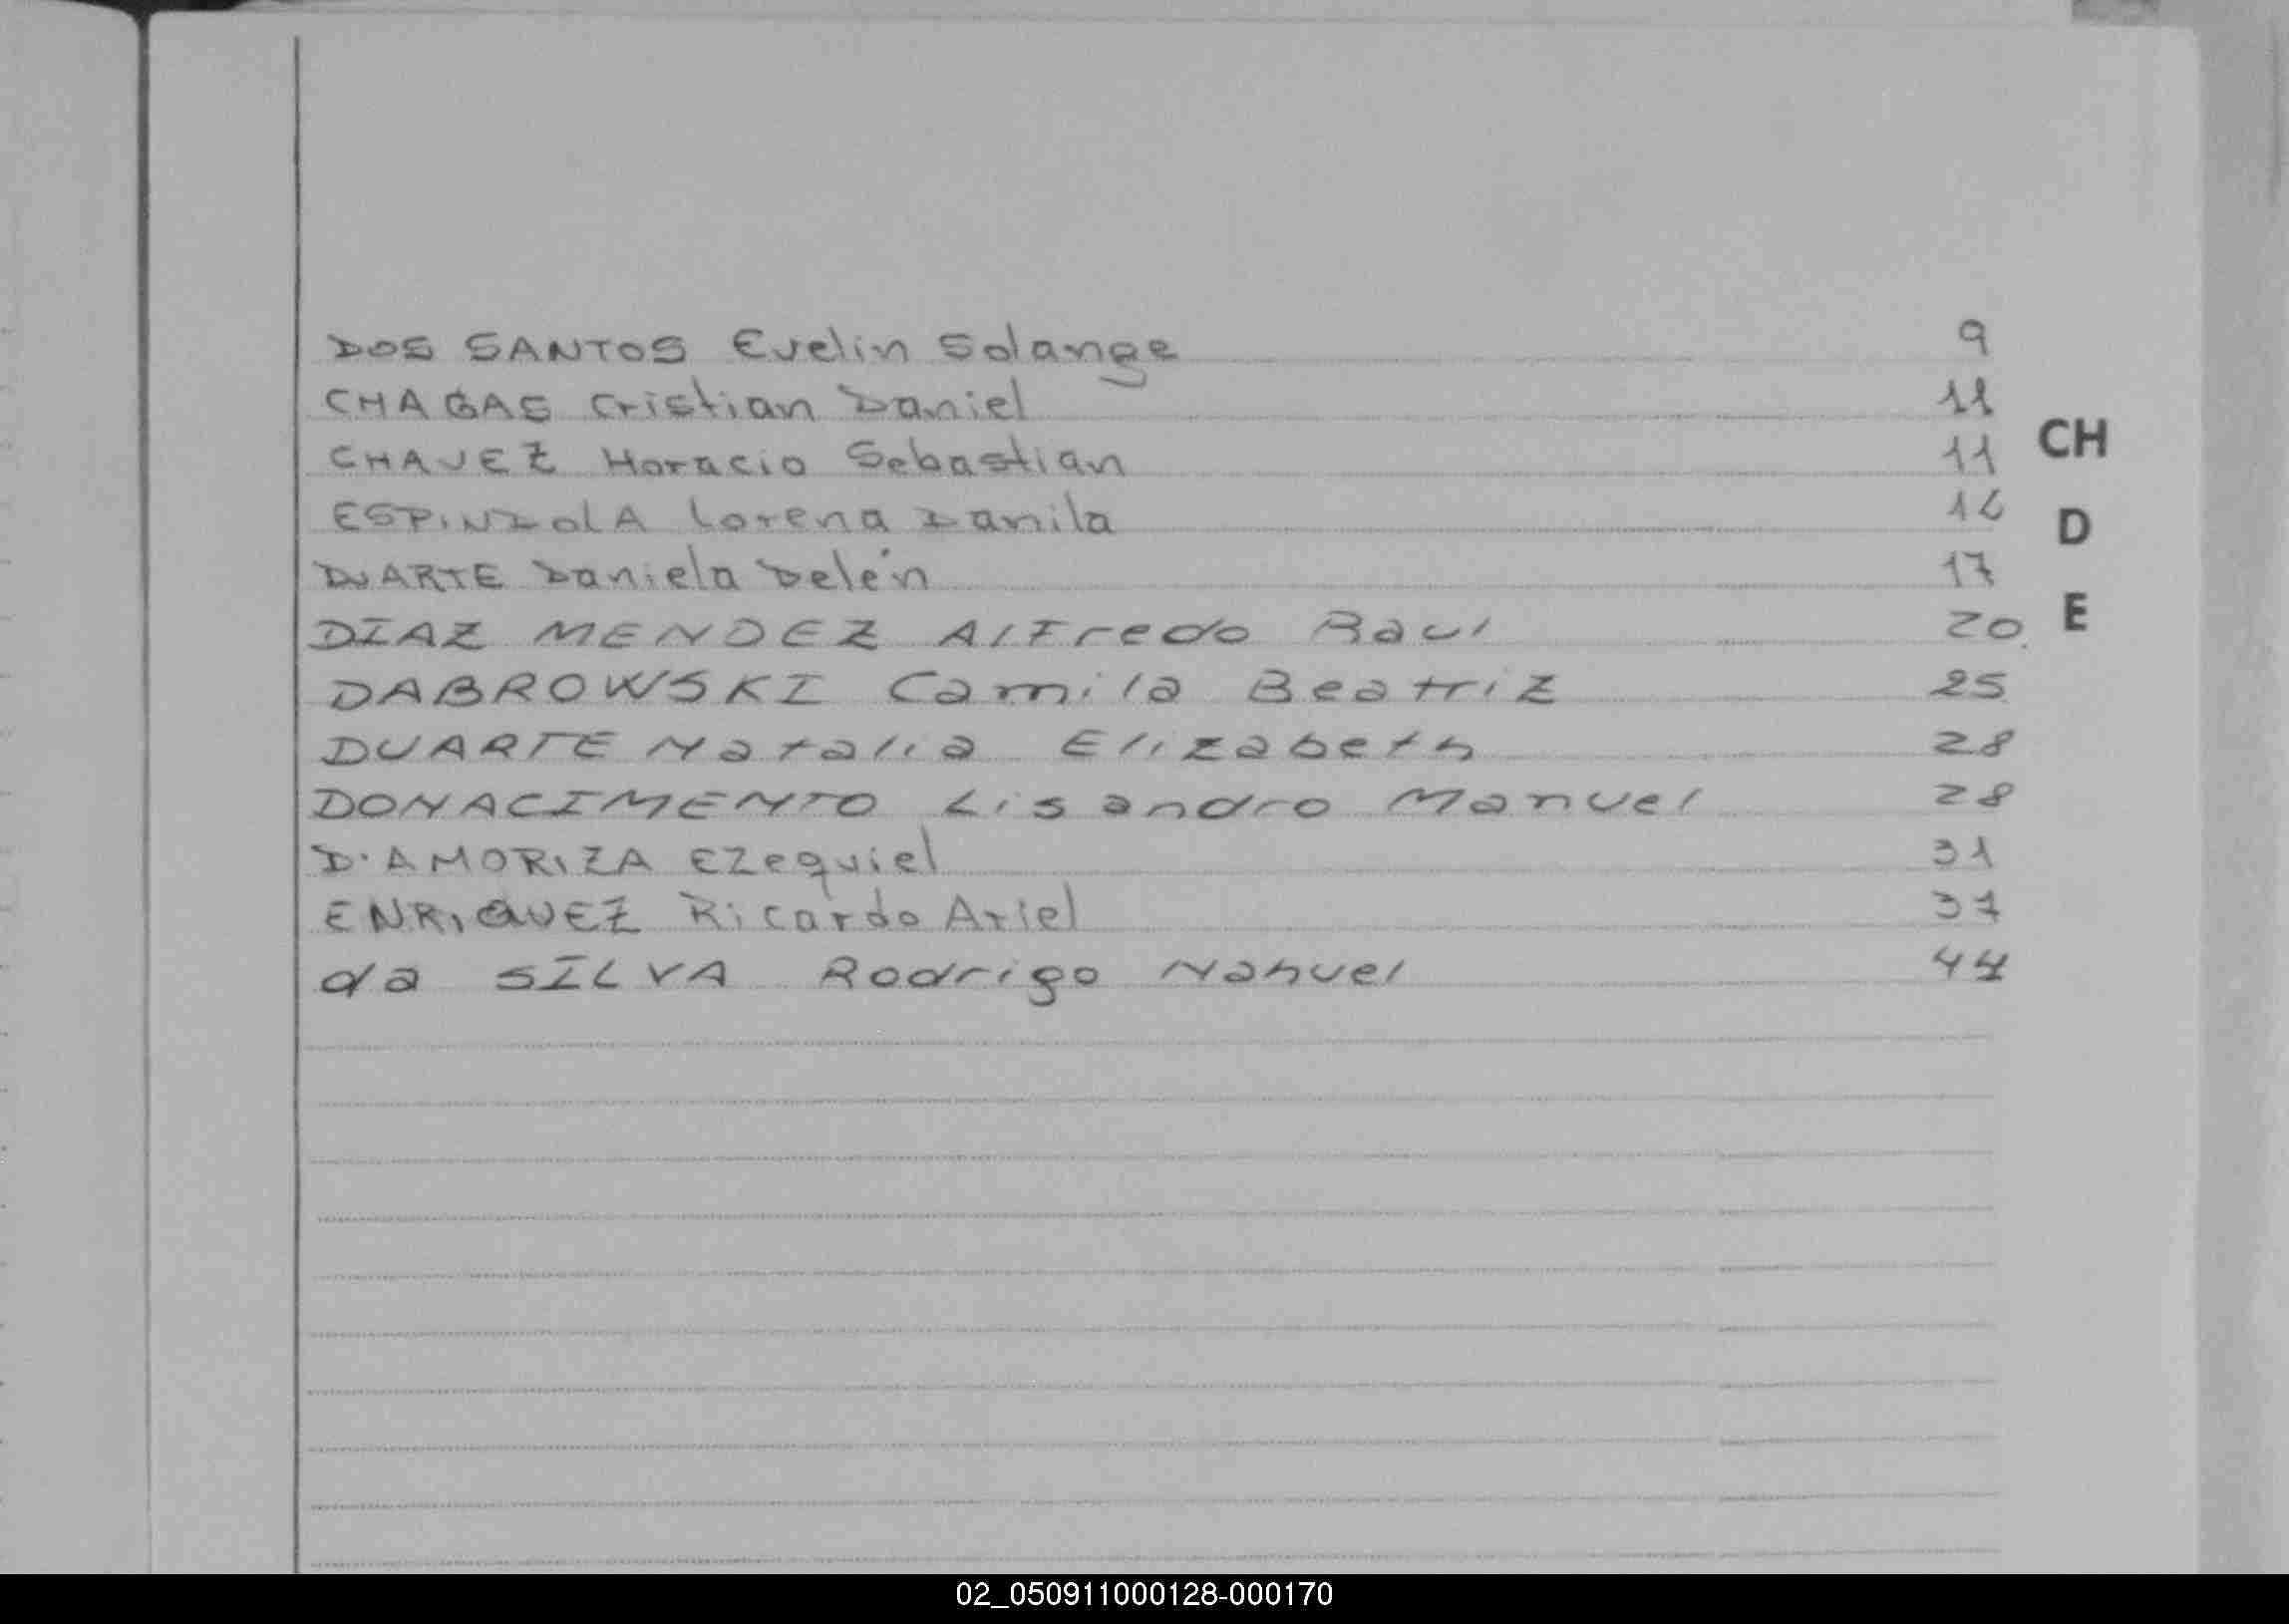 DOS SANTOS Evelin Solange 9
CHAGAS Cristian Daniel 11
CHAVEZ Horacio Sebastian 11
ESPINDOLA Lorena Danila 16
DUARTE Daniela Belén 17
DIAZ MENDEZ Alfredo Raul 20
DABROWSKI Camila Beatriz 25
DUARTE Natalia Elizabeth 28
DONACIMENTO Lisandro Manuel 28
D'AMORIZA Ezequiel 31
ENRIQUEZ Ricardo Ariel 37
da SILVA Rodrigo Nahuel 44
CH
D
E
02_050911000128-000170